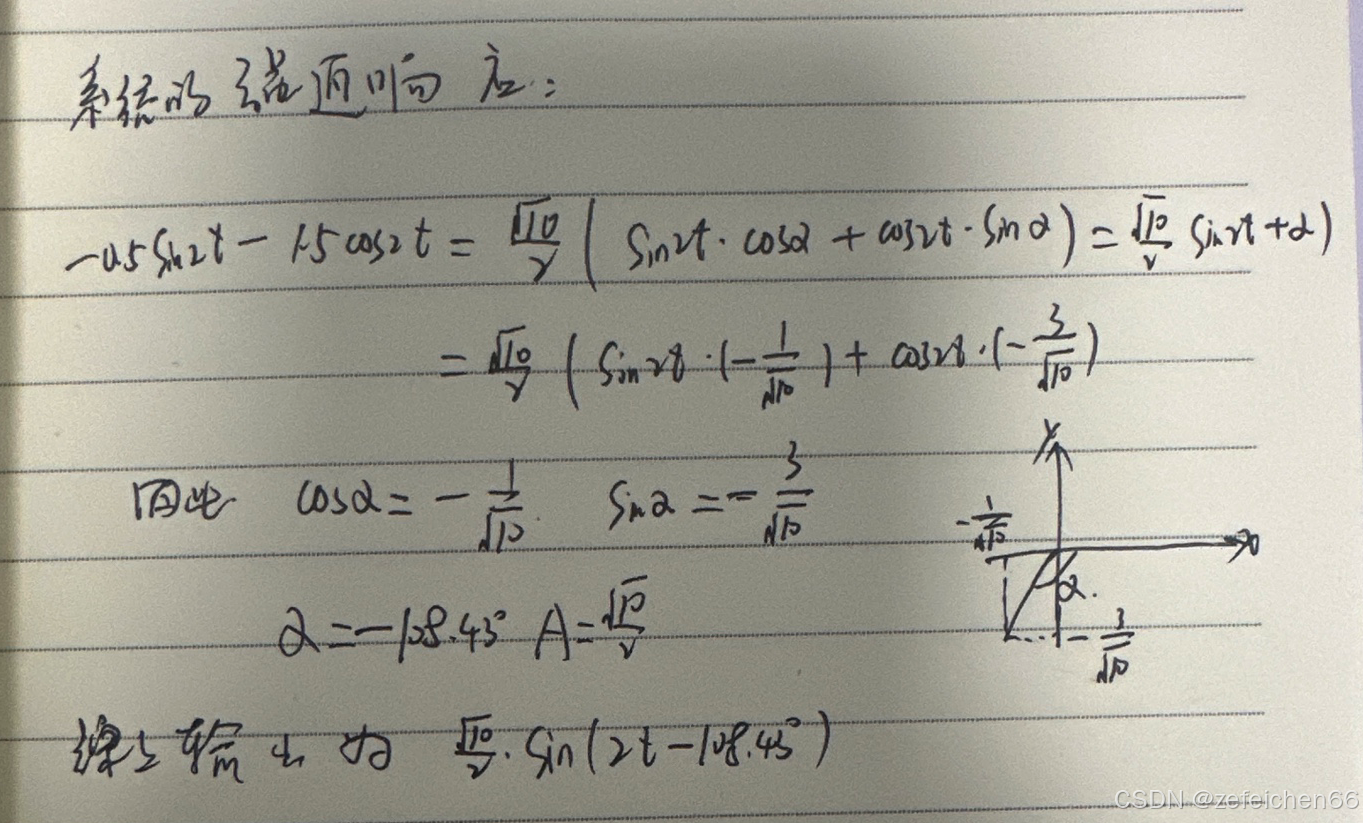 系统的强迫响应:
-0.5sin2t - 1.5cos2t = √10/2 ( sin2t · cosα + cos2t · sinα ) = √10/2 sin2t + α )
= √10/2 ( sin2t · (-1/√10) + cos2t · (-3/√10)
因此 cosα = - 1/√10 sinα = - 3/√10
α = -108.43° A = √10/2
综上输出为 √10/2 · sin(2t - 108.43°)
y
x
-1/√10
α.
-3/√10
CSDN @zefeichen66